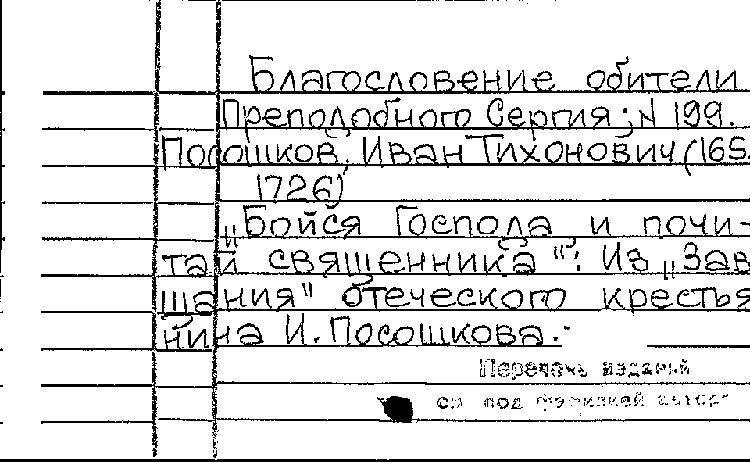 Благословение обители
Преподобного Сергия; N 199.
Посошков, Иван Тихонович (165
1726)
„Бойся Господа и почи-
тай священника“: Из „Зав
щания" отеческого крестья
нина И. Посошкова.-
Перечень изданий
см под фамилией автор